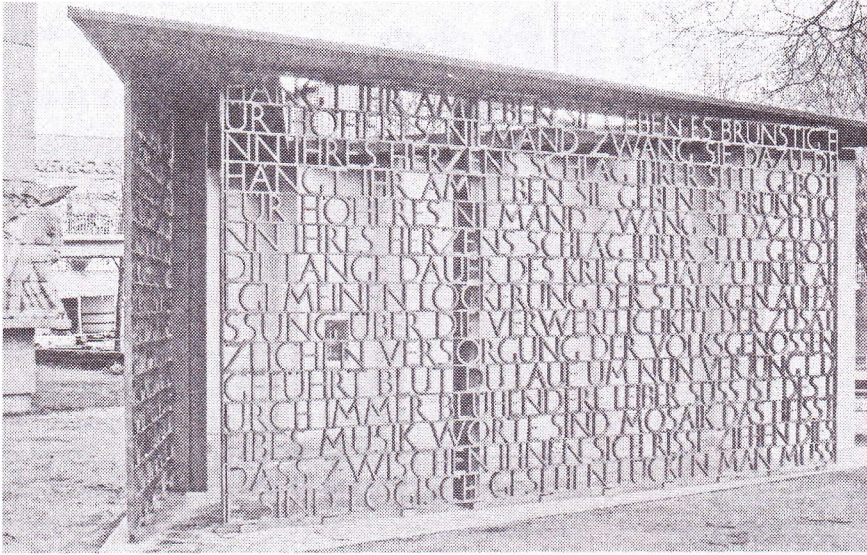 HÄNGT IHR AM LEBEN SIE GEBEN ES BRÜNSTIG F
ÜR HÖHERES NIEMAND ZWANG SIE DAZU DE
NN IHRES HERZENS SCHLAG IHRER SITTE GEBOTE
HÄNGT IHR AM LEBEN SIE GEBEN ES BRÜNSTIG
FÜR HÖHERES NIEMAND ZWANG SIE DAZU DE
NN IHRES HERZENS SCHLAG IHRER SITTE GEBOTE
DIE LANGE DAUER DES KRIEGES HAT ZU EINER A
LLGEMEINEN LOCKERUNG DER STRENGEN AUFFA
SSUNG ÜBER DIE VERWERFLICHKEIT DER ZUSÄT
ZLICHEN VERSORGUNG DER VOLKSGENOSSEN
GEFÜHRT BLUT DU LAUF UM NUN
URCH IMMER BLÜHENDER LEIBER SÜSS IST DES L
EIBES MUSIK WORTE SIND MOSAIK DAS HEISST
DASS ZWISCHEN IHNEN SICH RISSE ZIEHEN DIE
SIND LOGISCH GESEHEN LÜCKEN MAN MUSS